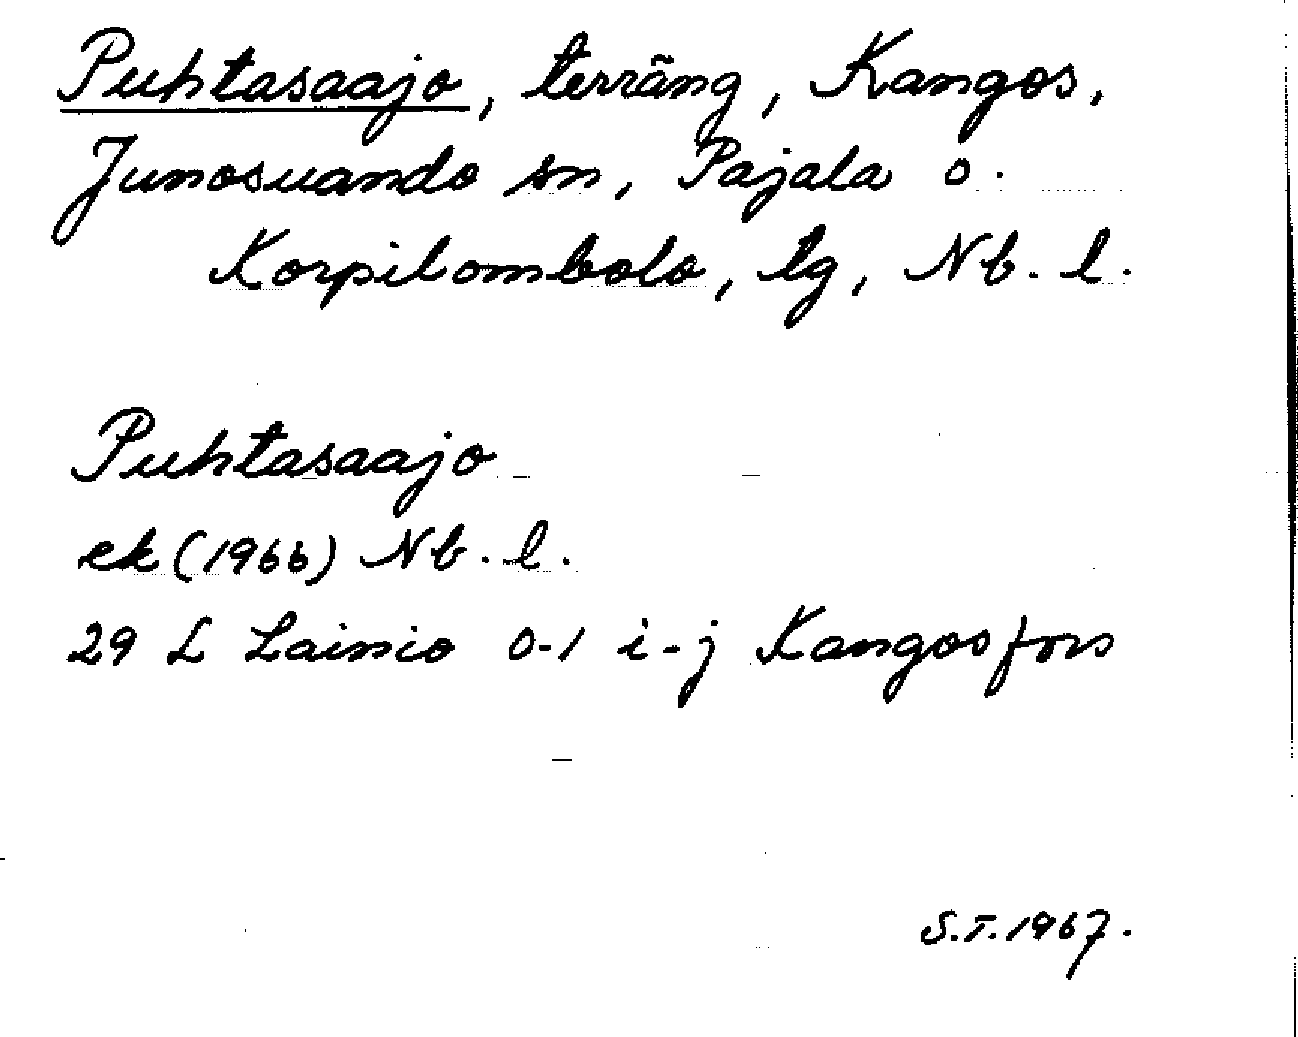 Puhtasaajo, terräng, Kangos,
Junosuando sn, Pajala o.
Korpilombolo, tg, Nb. l.
Puhtasaajo
ek (1966) Nb. l.
29 L Lainio 0-1 i-j Kangosfors
S.T. 1967.